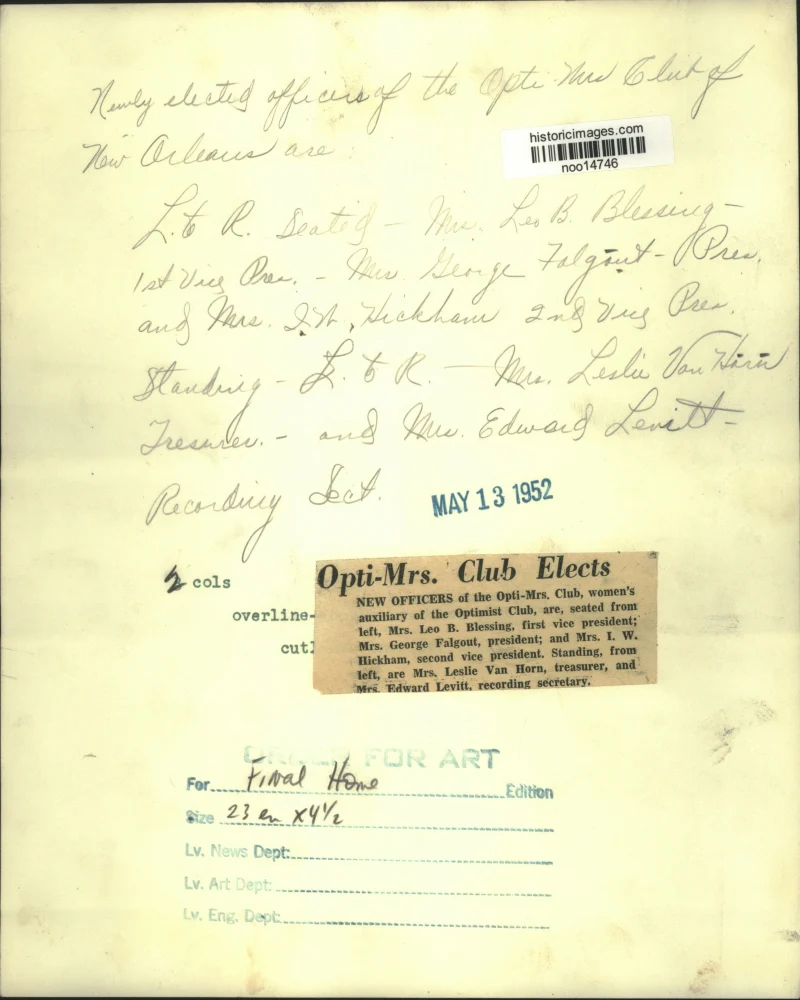 Newly elected officers of the Opti Mrs Club of
historicimages.com
noo14746
New Orleans are
L. to R. Seated - Mrs. Leo B. Blessing -
1st Vice Pres. - Mrs George Falgout - Pres.
and Mrs. I. W. Hickham 2nd Vice Pres.
Standing - L. to R. - Mrs. Leslie Van Horn
Tresurer. - and Mrs. Edward Levitt -
Recording Sect.
MAY 13 1952
2 cols
overline-
cutl
Opti-Mrs. Club Elects
NEW OFFICERS of the Opti-Mrs. Club, women's
auxiliary of the Optimist Club, are, seated from
left, Mrs. Leo B. Blessing, first vice president;
Mrs. George Falgout, president; and Mrs. I. W.
Hickham, second vice president. Standing, from
left, are Mrs. Leslie Van Horn, treasurer, and
Mrs. Edward Levitt, recording secretary.
ORDER FOR ART
For Final Home Edition
Size 23 em x 4 1/2
Lv. News Dept:
Lv. Art Dept:
Lv. Eng. Dept: